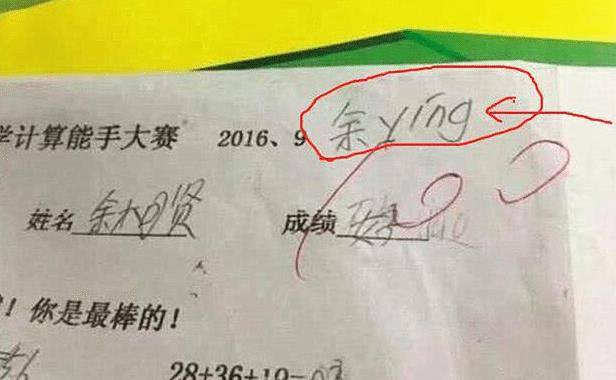 余ying
学计算能手大赛 2016、9
姓名 余 贤 成绩
！你是最棒的！
28+36+10=